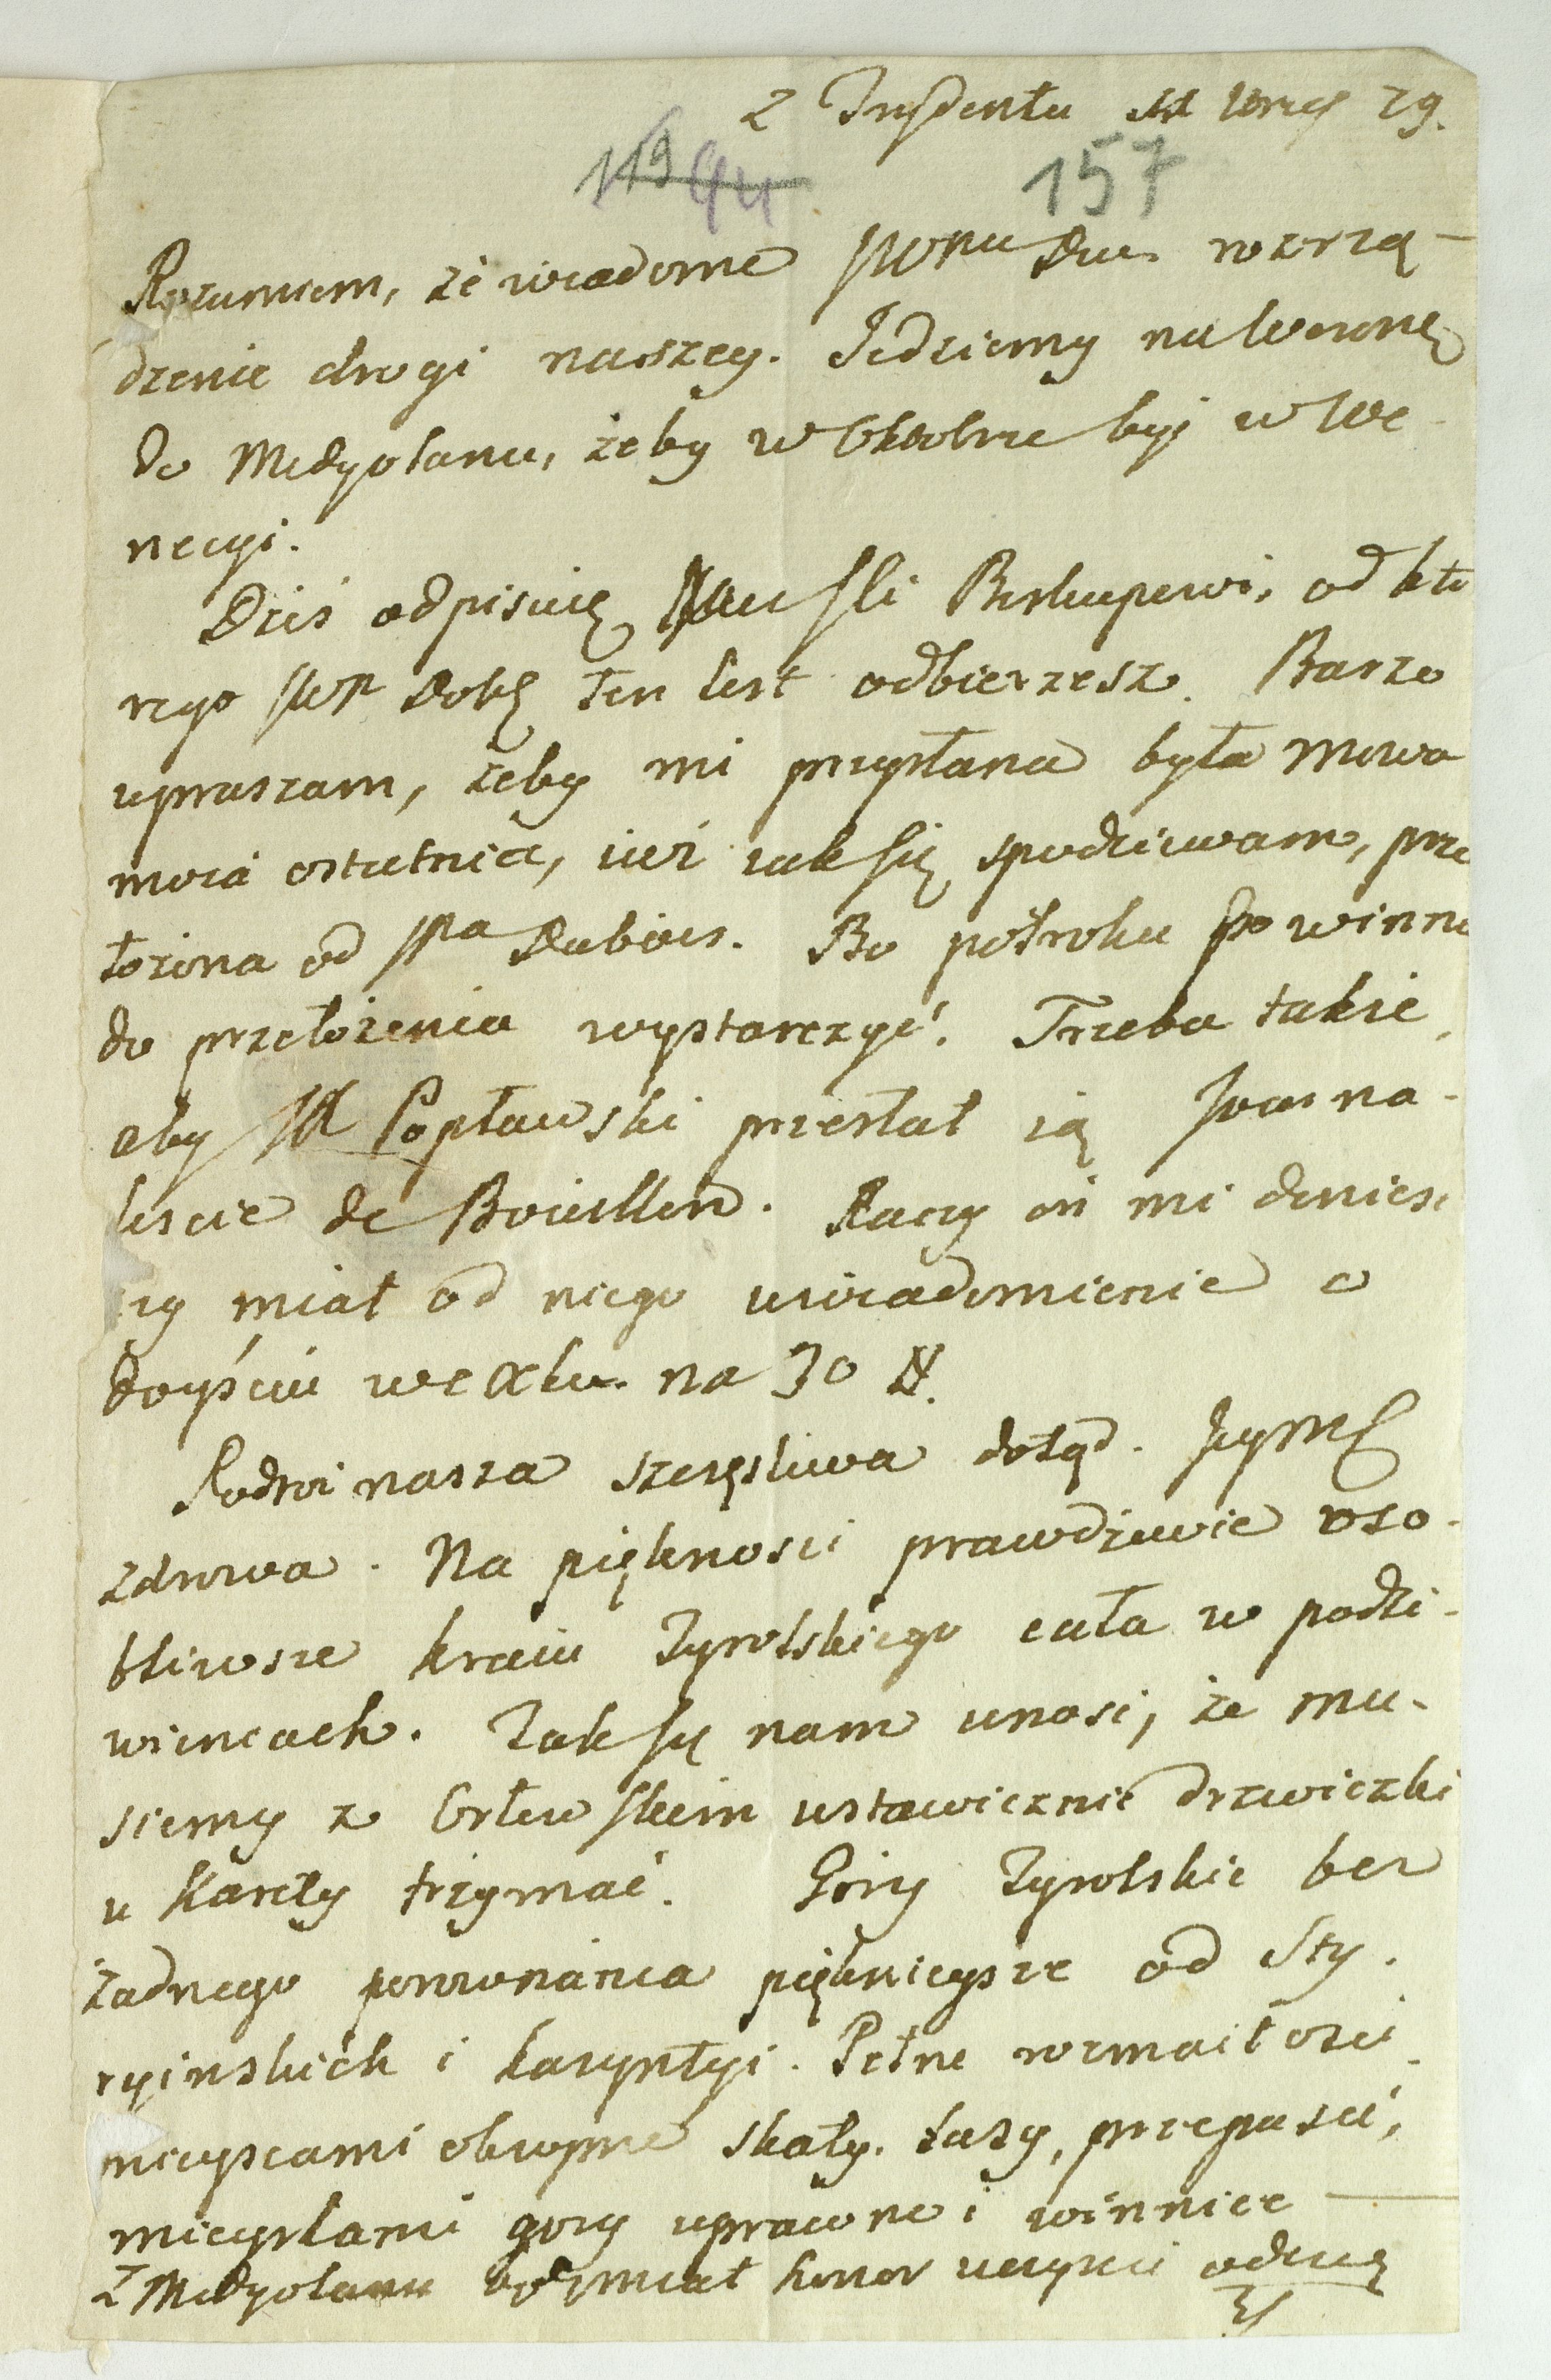 z Trydentu 29.
119 94 157
Rozumiem, że wiadome rozrzą-
dzenie drogi naszey. Jedziemy na Weronę
do Medyolanu, żeby w Oktobrze być w We-
necyi.
Dziś odpisuię Biskupowi, od któ
rego ten list odbierzesz. Barzo
upraszam, żeby mi przysłana była mowa
moia ostatnia, iuż iak się spodziewam, prze
łożona od Dubois. Bo półroku powinno
do przełożenia wystarczyć. Trzeba także,
aby Popławski przesłał ią
de Bouillon. Raczy on mi donieść
czy miał od niego uwiadomienie o
doyściu wexlu na 30 #.
Podroż nasza szczęśliwa dotąd.
zdrowa. Na piękności prawdziwie oso-
bliwsze kraiu Tyrolskiego cała w podzi-
wieniach. Tak się nam unosi, że mu-
siemy z Orłowskim ustawicznie drzwiczki
u karety trzymać. Góry Tyrolskie bez
żadnego porownania pięknieysze od Sty-
ryinskich i Karyntyi. Pełne rozmaitości
mieyscami okropne skały, lasy, przepaści,
mieyscami gory uprawne i winnice —
Z Medyolanu będę miał honor uczynić odezwę